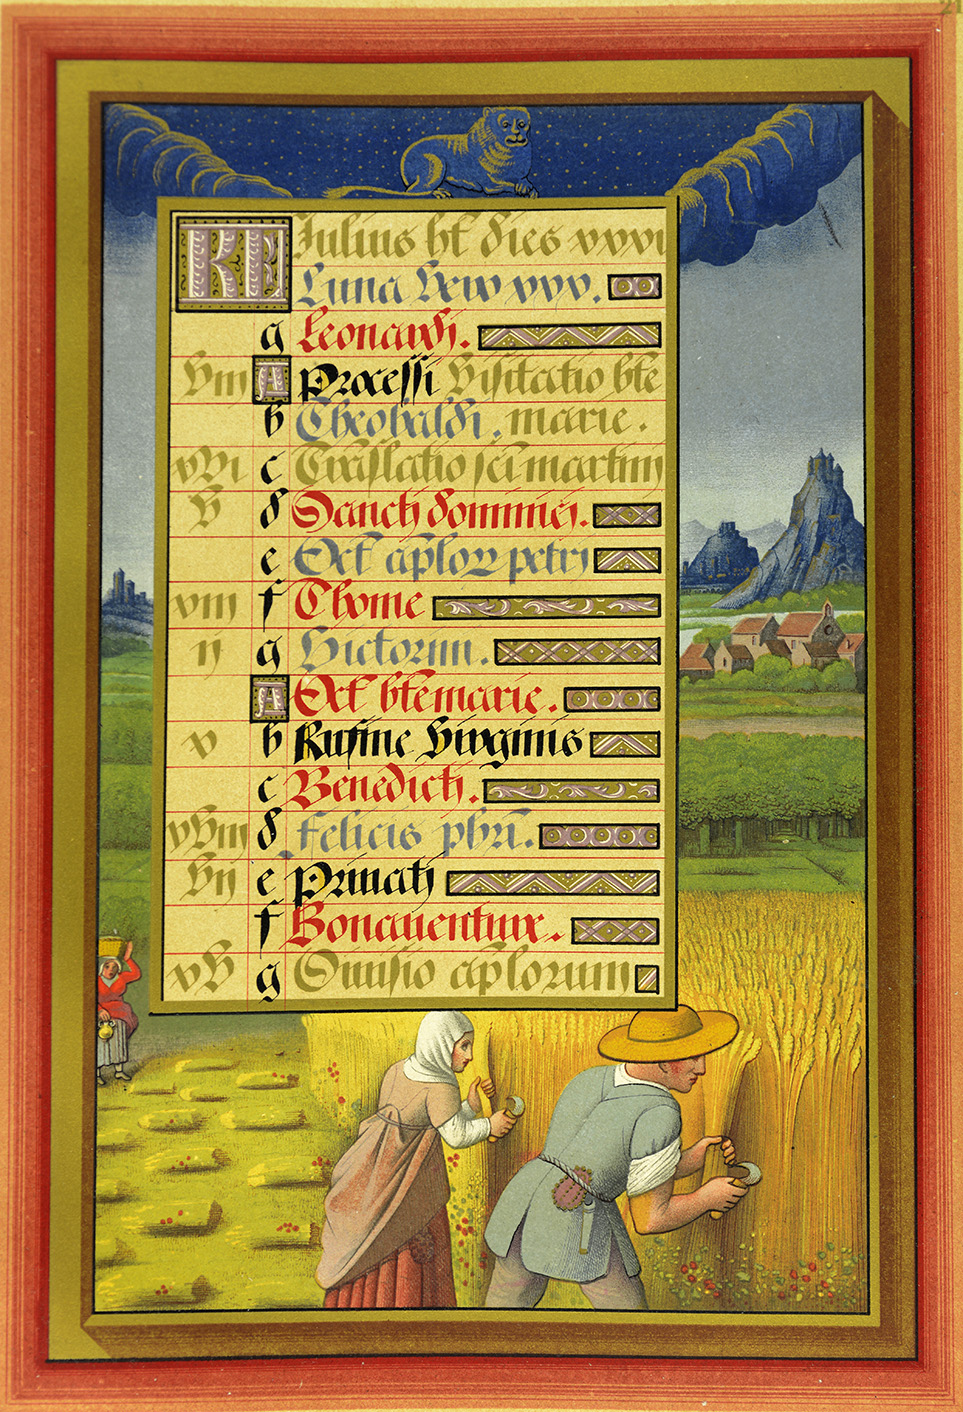 KL Julius ht dies xxxi
Luna vero xxx.
g Leonardi.
xiii A Processi Visitatio bte
b Theobaldi. marie.
xvi c Traslatio sci martini
v d Sancti dominici.
e Oct aplor petri
xiii f Thome
ii g Victorini.
A Oct bte marie.
x b Rufine virginis
c Benedicti.
xviii d Felicis pbri.
vii e Privati
f Bonaventure.
xv g Divisio aplorum